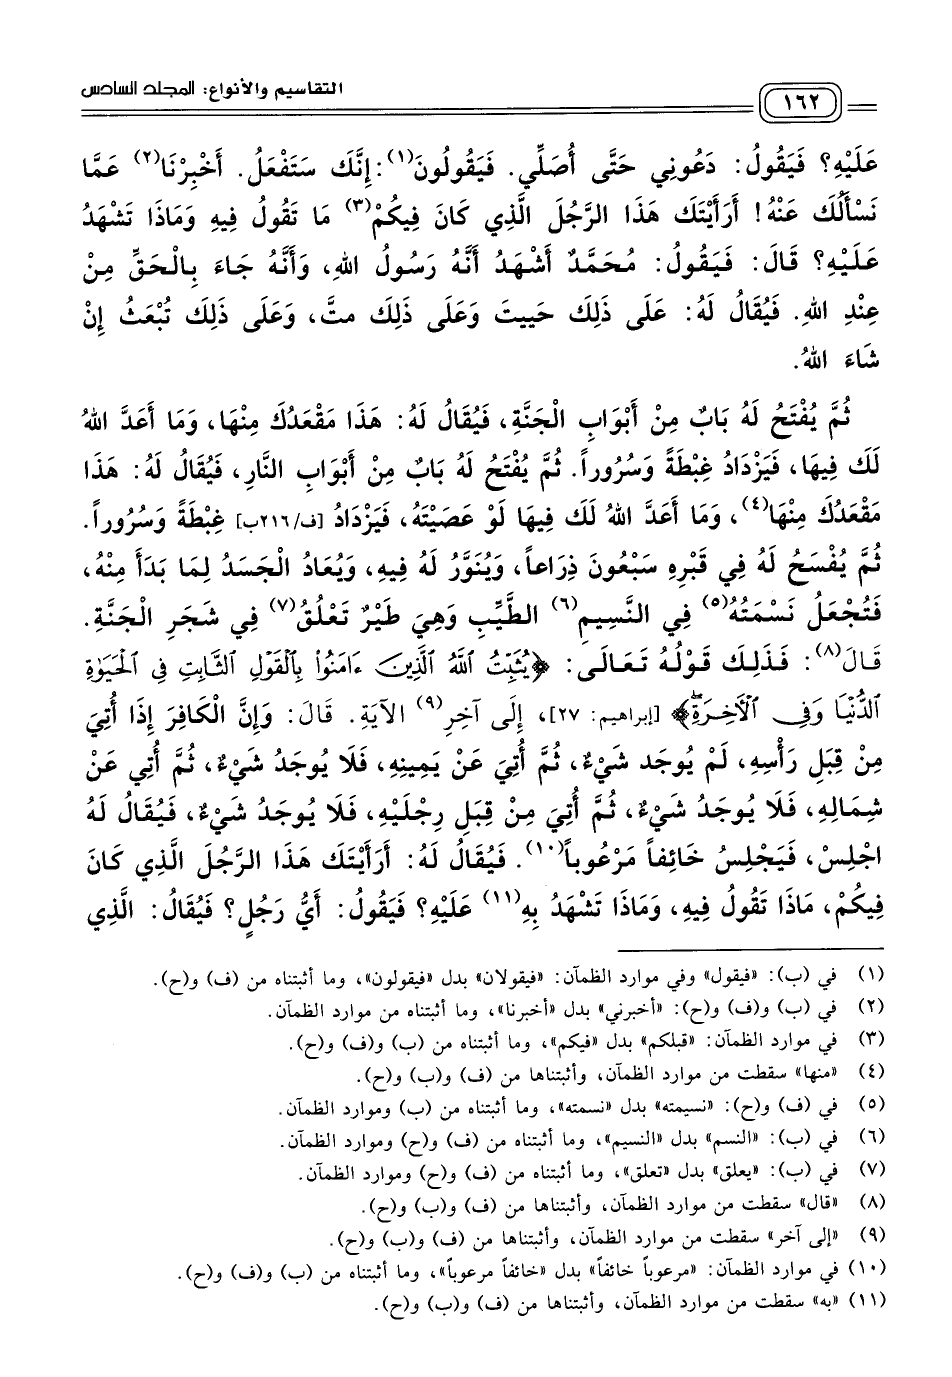 ١٦٢ التقاسيم والأنواع: المجلد السادس
عَلَيْهِ؟ فَيَقُولُ: دَعُونِي حَتَّى أُصَلِّي. فَيَقُولُونَ(١): إِنَّكَ سَتَفْعَلُ. أَخْبِرْنَا(٢) عَمَّا
نَسْأَلُكَ عَنْهُ! أَرَأَيْتَكَ هَذَا الرَّجُلَ الَّذِي كَانَ فِيكُمْ(٣) مَا تَقُولُ فِيهِ وَمَاذَا تَشْهَدُ
عَلَيْهِ؟ قَالَ: فَيَقُولُ: مُحَمَّدٌ أَشْهَدُ أَنَّهُ رَسُولُ اللهِ، وَأَنَّهُ جَاءَ بِالْحَقِّ مِنْ
عِنْدِ اللهِ. فَيُقَالُ لَهُ: عَلَى ذَلِكَ حَيِيتَ وَعَلَى ذَلِكَ متَّ، وَعَلَى ذَلِكَ تُبْعَثُ إِنْ
شَاءَ اللهُ.
ثُمَّ يُفْتَحُ لَهُ بَابٌ مِنْ أَبْوَابِ الْجَنَّةِ، فَيُقَالُ لَهُ: هَذَا مَقْعَدُكَ مِنْهَا، وَمَا أَعَدَّ اللهُ
لَكَ فِيهَا، فَيَزْدَادُ غِبْطَةً وَسُرُوراً. ثُمَّ يُفْتَحُ لَهُ بَابٌ مِنْ أَبْوَابِ النَّارِ، فَيُقَالُ لَهُ: هَذَا
مَقْعَدُكَ مِنْهَا(٤)، وَمَا أَعَدَّ اللهُ لَكَ فِيهَا لَوْ عَصَيْتَهُ، فَيَزْدَادُ [ف/٢١٦ب] غِبْطَةً وَسُرُوراً.
ثُمَّ يُفْسَحُ لَهُ فِي قَبْرِهِ سَبْعُونَ ذِرَاعاً، وَيُنَوَّرُ لَهُ فِيهِ، وَيُعَادُ الْجَسَدُ لِمَا بَدَأَ مِنْهُ،
فَتُجْعَلُ نَسْمَتُهُ(٥) فِي النَّسِيمِ(٦) الطَّيِّبِ وَهِيَ طَيْرٌ تَعْلُقُ(٧) فِي شَجَرِ الْجَنَّةِ.
قَالَ(٨): فَذَلِكَ قَوْلُهُ تَعَالَى: ﴿يُثَبِّتُ ٱللَّهُ ٱلَّذِينَ ءَامَنُواْ بِٱلْقَوْلِ ٱلثَّابِتِ فِي ٱلْحَيَوٰةِ
ٱلدُّنْيَا وَفِي ٱلْآخِرَةِۖ﴾ [إبراهيم: ٢٧]، إِلَى آخِرِ(٩) الآيَةِ. قَالَ: وَإِنَّ الْكَافِرَ إِذَا أُتِيَ
مِنْ قِبَلِ رَأْسِهِ، لَمْ يُوجَد شَيْءٌ، ثُمَّ أُتِيَ عَنْ يَمِينِهِ، فَلَا يُوجَدُ شَيْءٌ، ثُمَّ أُتِي عَنْ
شِمَالِهِ، فَلَا يُوجَدُ شَيْءٌ، ثُمَّ أُتِيَ مِنْ قِبَلِ رِجْلَيْهِ، فَلَا يُوجَدُ شَيْءٌ، فَيُقَالُ لَهُ
اجْلِسْ، فَيَجْلِسُ خَائِفاً مَرْعُوباً(١٠). فَيُقَالُ لَهُ: أَرَأَيْتَكَ هَذَا الرَّجُلَ الَّذِي كَانَ
فِيكُمْ، مَاذَا تَقُولُ فِيهِ، وَمَاذَا تَشْهَدُ بِهِ(١١) عَلَيْهِ؟ فَيَقُولُ: أَيُّ رَجُلٍ؟ فَيُقَالُ: الَّذِي
(١) في (ب): «فيقول» وفي موارد الظمآن: «فيقولان» بدل «فيقولون»، وما أثبتناه من (ف) و(ح).
(٢) في (ب) و(ف) و(ح): «أخبرني» بدل «أخبرنا»، وما أثبتناه من موارد الظمآن.
(٣) في موارد الظمآن: «قبلكم» بدل «فيكم»، وما أثبتناه من (ب) و(ف) و(ح).
(٤) «منها» سقطت من موارد الظمآن، وأثبتناها من (ف) و(ب) و(ح).
(٥) في (ف) و(ح): «نسيمته» بدل «نسمته»، وما أثبتناه من (ب) وموارد الظمآن.
(٦) في (ب): «النسم» بدل «النسيم»، وما أثبتناه من (ف) و(ح) وموارد الظمآن.
(٧) في (ب): «يعلق» بدل «تعلق»، وما أثبتناه من (ف) و(ح) وموارد الظمآن.
(٨) «قال» سقطت من موارد الظمآن، وأثبتناها من (ف) و(ب) و(ح).
(٩) «إلى آخر» سقطت من موارد الظمآن، وأثبتناها من (ف) و(ب) و(ح).
(١٠) في موارد الظمآن: «مرعوباً خائفاً» بدل «خائفاً مرعوباً»، وما أثبتناه من (ب) و(ف) و(ح).
(١١) «به» سقطت من موارد الظمآن، وأثبتناها من (ف) و(ب) و(ح).